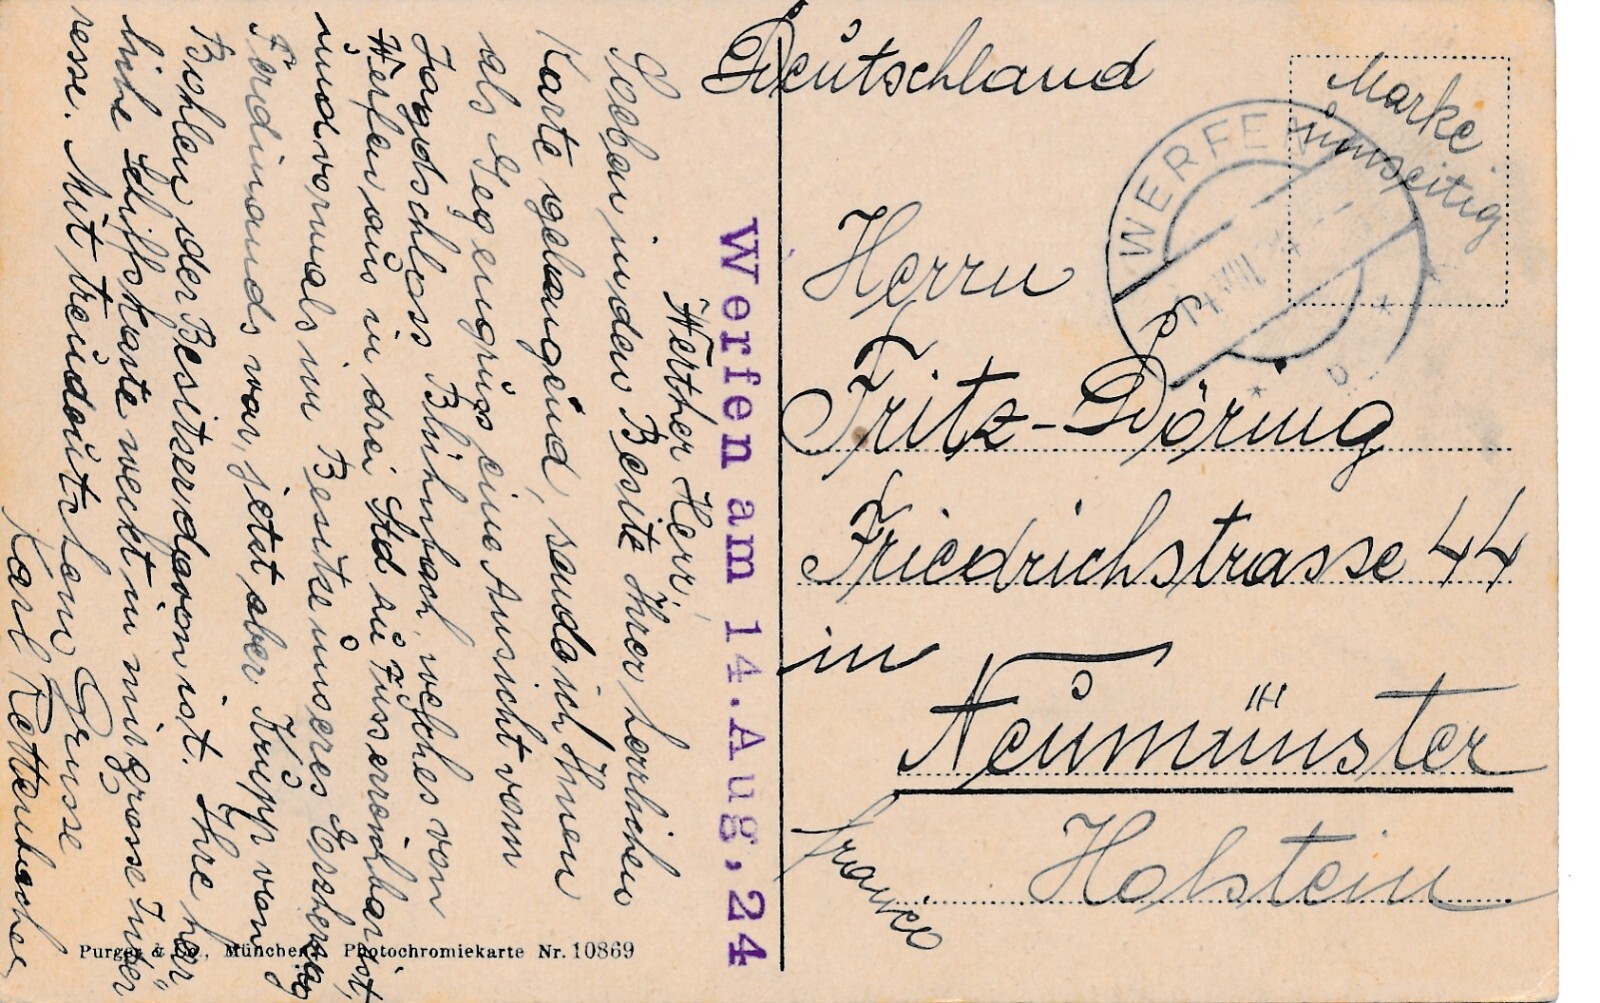 Werther Herr,
Soeben in den Besitz Ihrer herrlichen
Karte gelangend, sende ich Ihnen
als Gegengruss eine Ansicht vom
Jagdschloss Blühnbach, welches von
Werfen aus in drei Std zu Fuss erreichbar ist,
und vormals im Besitze unseres Erzherzog
Ferdinands war, jetzt aber Krupp von
Bohlen der Besitzer davon ist. Ihre herr-
liche Schiffskarte weckt in mir grosse Inter
esse. Mit treudeutschem Grusse
Karl
Werfen am 14. Aug, 24
Purger & Co., München. Photochromiekarte Nr. 10869
Deutschland
Marke
umseitig
WERFEN
Herrn
Fritz-Döring
Friedrichstrasse 44
in
Neumünster
Holstein
franco